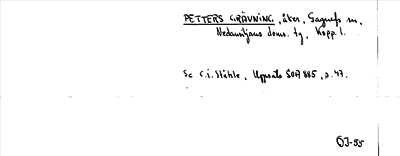 PETTERS GRÄVNING, åker, Gagnefs sn,
Nedansjös doms. tg, Kopp. l.
Sc C.I. Ståhle, Uppsats SOÄ 885, s. 47.
ÖJ-55